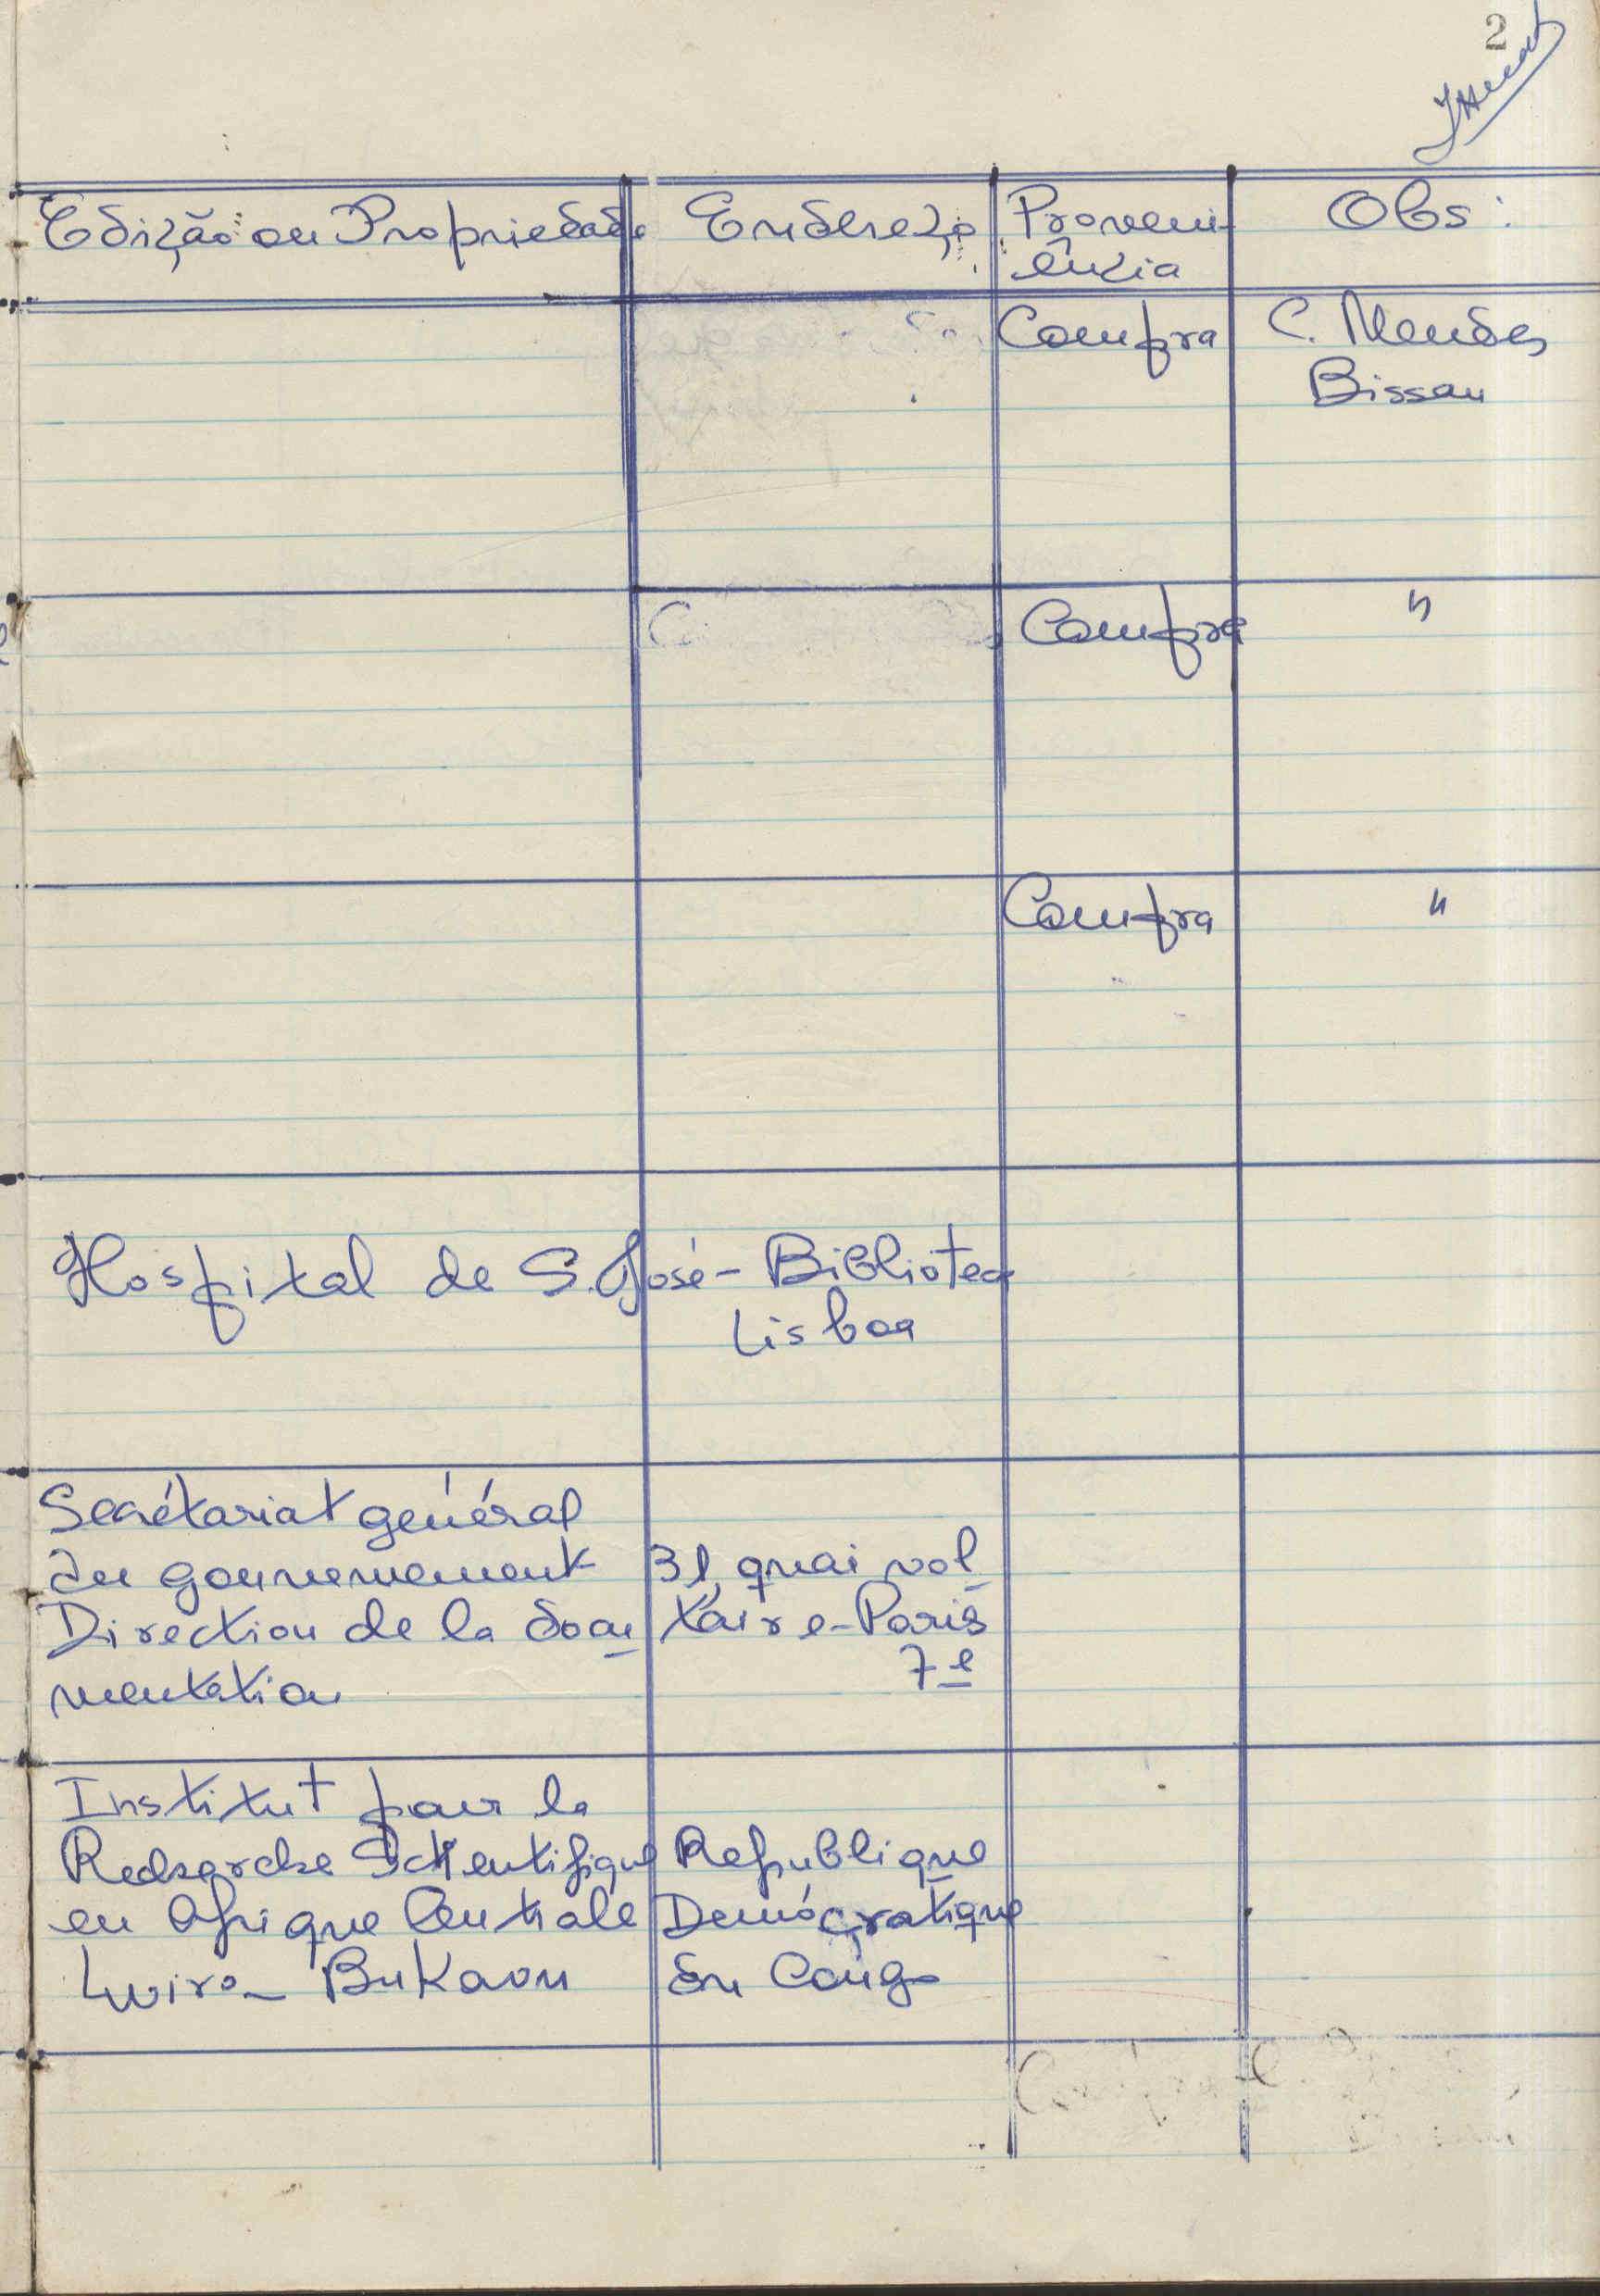 2
Edição ou Propriedade Endereço Proveni- Obs:
ência
Compra C. Mendes
Bissau
Compra "
Compra "
Hospital de S. José - Biblioteca
Lisboa
Secrétariat général
du gouvernement 31, quai vol-
Direction de la docu- taire - Paris
mentation 7e
Institut pour la
Recherche Scientifique Republique
en Afrique Centrale Demócratique
Lwiro - Bukavu du Congo